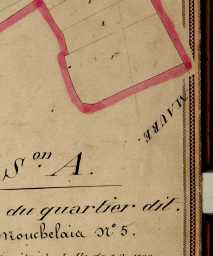 MAURE.
S.on A.
du quartier dit.
Mouchelaia N° 5.